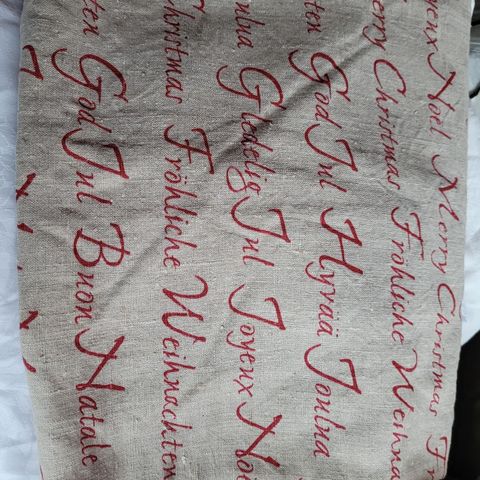 oyeux Noël Merry Christmas Fr
erry Christmas Fröhliche Weihna
ten God Jul Hyvää Joulua
ulua Gledelig Jul Joyeux Noë
Christmas Fröhliche Weihnachten
ten God Jul Buon Natale